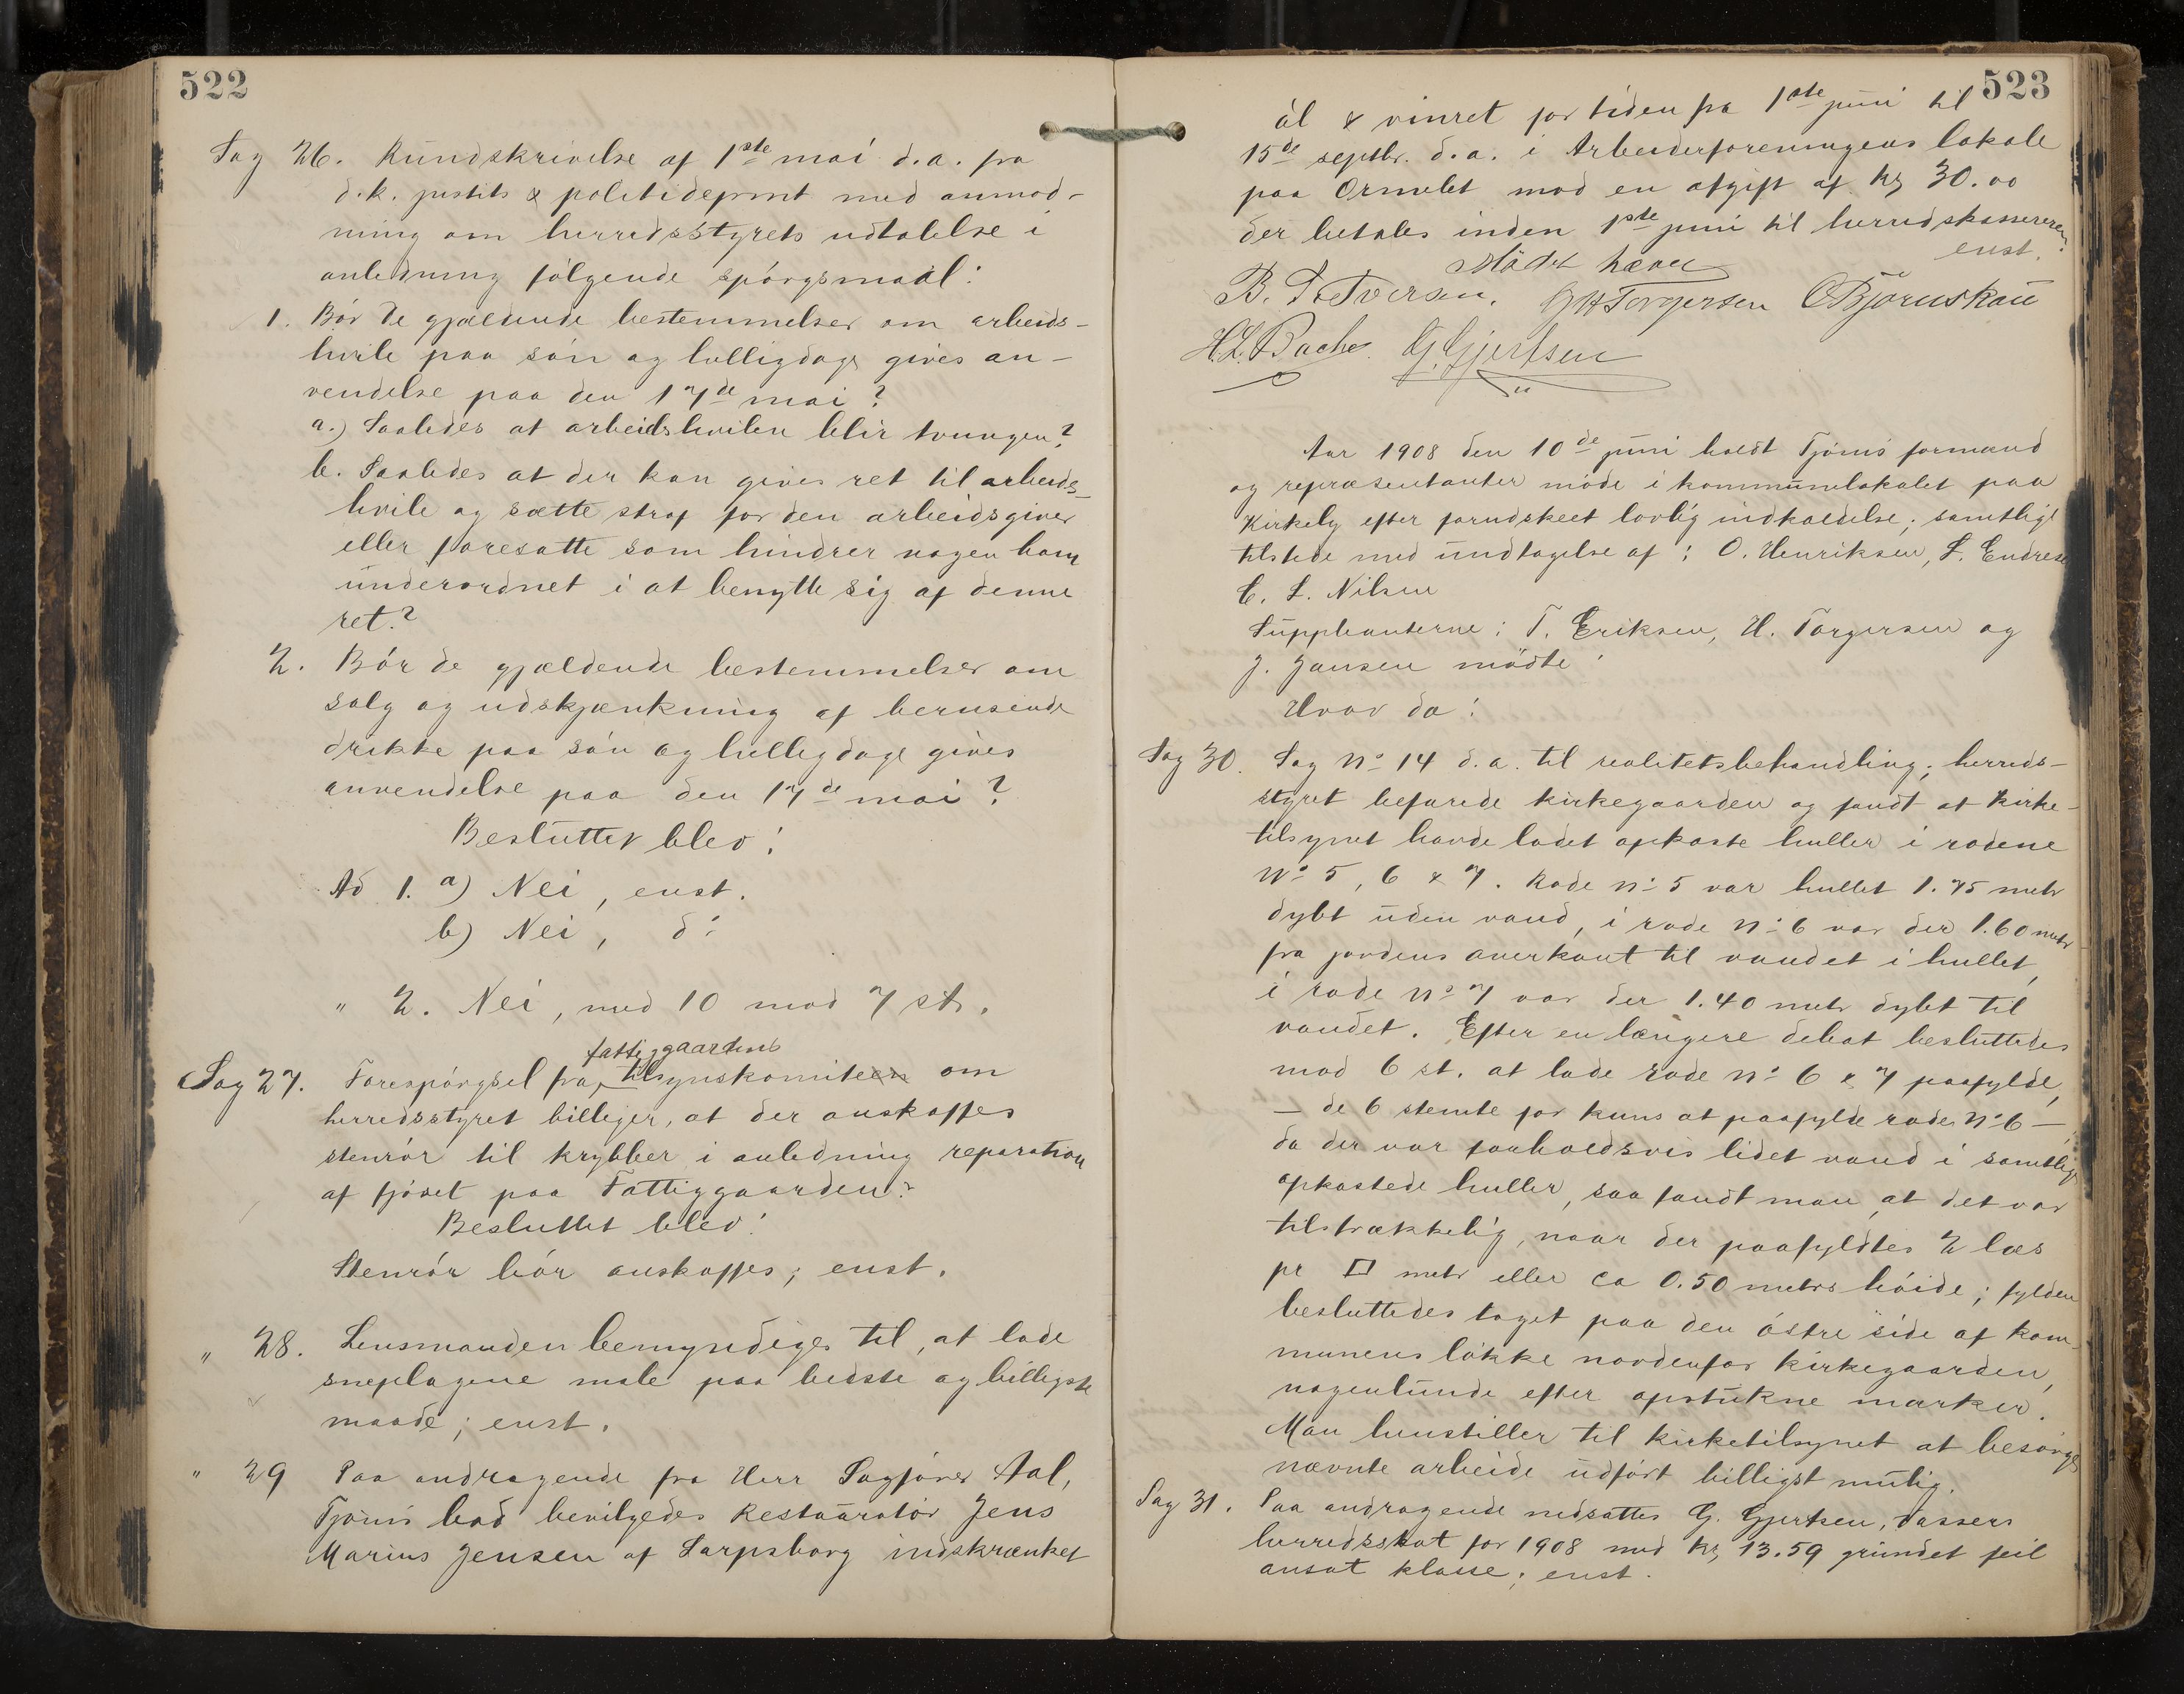 522
Sag 26. Rundskrivelse af 1ste mai d.a. fra
d.k. justits & politidepmt med anmod-
ning om herredsstyrets udtalelse i
anledning følgende spørgsmaal:
1. Bør de gjældende bestemmelser om arbeids-
hvile paa søn og helligdage gives an-
vendelse paa den 17de mai?
a.) Saaledes at arbeidshvilen blir tvungen?
b. Saaledes at der kan gives ret til arbeids-
hvile og sætte straf for den arbeidsgiver
eller foresatte som hindrer nogen ham
underordnet i at benytte sig af denne
ret?
2. Bør de gjældende bestemmelser om
salg og udskjænkning af berusende
drikke paa søn og helligdage gives
anvendelse paa den 17de mai?
Besluttet blev:
Ad 1. a) Nei, enst.
b) Nei, do
" 2. Nei, med 10 mod 7 st.
fattiggaardens
Sag 27. Forespørgsel fra tilsynskomiteen om
herredsstyret billiger, at der anskaffes
stenrør til krybber i anledning reparation
af fjøset paa Fattiggaarden?
Besluttet blev:
Stenrør bør anskaffes; enst.
" 28. Lensmanden bemyndiges til, at lade
sneplogene male paa bedste og billigste
maade; enst.
" 29 Paa andragende fra Herr Sagfører Aal,
Tjømø bad bevilgedes Restauratør Jens
Marius Jensen af Sarpsborg indskrænket
523
øl & vinret for tiden fra 1ste juni til
15de septbr. d.a. i Arbeiderforeningens lokale
paa Ormelet mod en afgift af kr 30.00
der betales inden 1ste juni til herredskassereren.
enst.
Mødet hævet
B. Iversen. G H Torgersen O Bjørnskau
H.L. Bache. G. Gjertsen
Aar 1908 den 10de juni holdt Tjømø formænd
og repræsentanter møde i kommunelokalet paa
Kirkely efter forudskeet lovlig indkaldelse; samtlige
tilstede med undtagelse af: O. Henriksen, S. Endresen
C. L. Nilsen
Suppleanterne: T. Eriksen, H. Torgersen og
J. Jansen mødte!
Hvor da:
Sag 30. Sag No 14 d.a. til realitetsbehandling; herreds-
styret befarede kirkegaarden og fandt at kirke-
tilsynet havde ladet opkaste huller i rodene
No 5, 6 & 7. Rode no 5 var hullet 1.75 metr
dybt uden vand, i rode no 6 var der 1.60 metr
fra jordens overkant til vandet i hullet,
i rode No 7 var der 1.40 metr dybt til
vandet. Efter en længere debat besluttedes
mod 6 st. at lade rode no 6 & 7 paafylde,
– de 6 stemte for kuns at paafylde rode No 6 –
da der var forholdsvis lidet vand i samtlige
opkastede huller, saa fandt man, at det var
tilstrækkelig, naar der paafyldtes 2 læs
pr □ metr eller ca 0.50 metrs høide; fylden
besluttedes taget paa den østre side af kom-
munens løkke nordenfor kirkegaarden,
nogenlunde efter opstukne marker.
Man henstiller til kirketilsynet at besørge
nævnte arbeide udført billigst mulig.
Sag 31. Paa andragende nedsattes G. Gjertsen, Vassers
herredsskat for 1908 med kr 13.59 grundet feil
ansat klasse; enst.